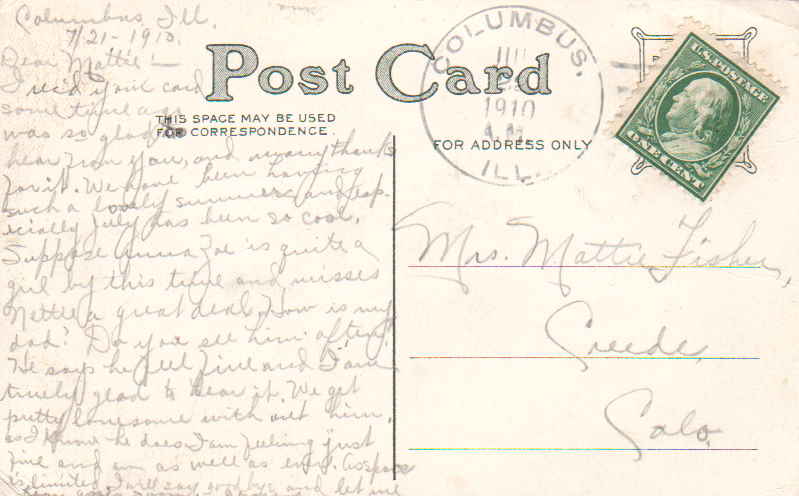 Columbus Ill.
7/21-1910.
Dear Mattie:—
I rec'd your card
some time ago
was so glad to
hear from you, and many thanks
for it. We have been having
such a lovely summer and esp-
ecially July has been so cool.
Suppose Anna Zoe is quite a
girl by this time and misses
Nettie a great deal. How is my
dad? Do you see him often?
He says he feel fine and I am
truely glad to hear it. We get
pretty lonesome with out him,
as I know he does. I am feeling just
fine and am as well as ever. As space
is limited I will say goodbye and let me
hear
Post Card
THIS SPACE MAY BE USED
FOR CORRESPONDENCE.
FOR ADDRESS ONLY
COLUMBUS,
1910
ILL.
U.S. POSTAGE
ONE CENT
Mrs. Mattie Fisher,
Creede,
Colo.